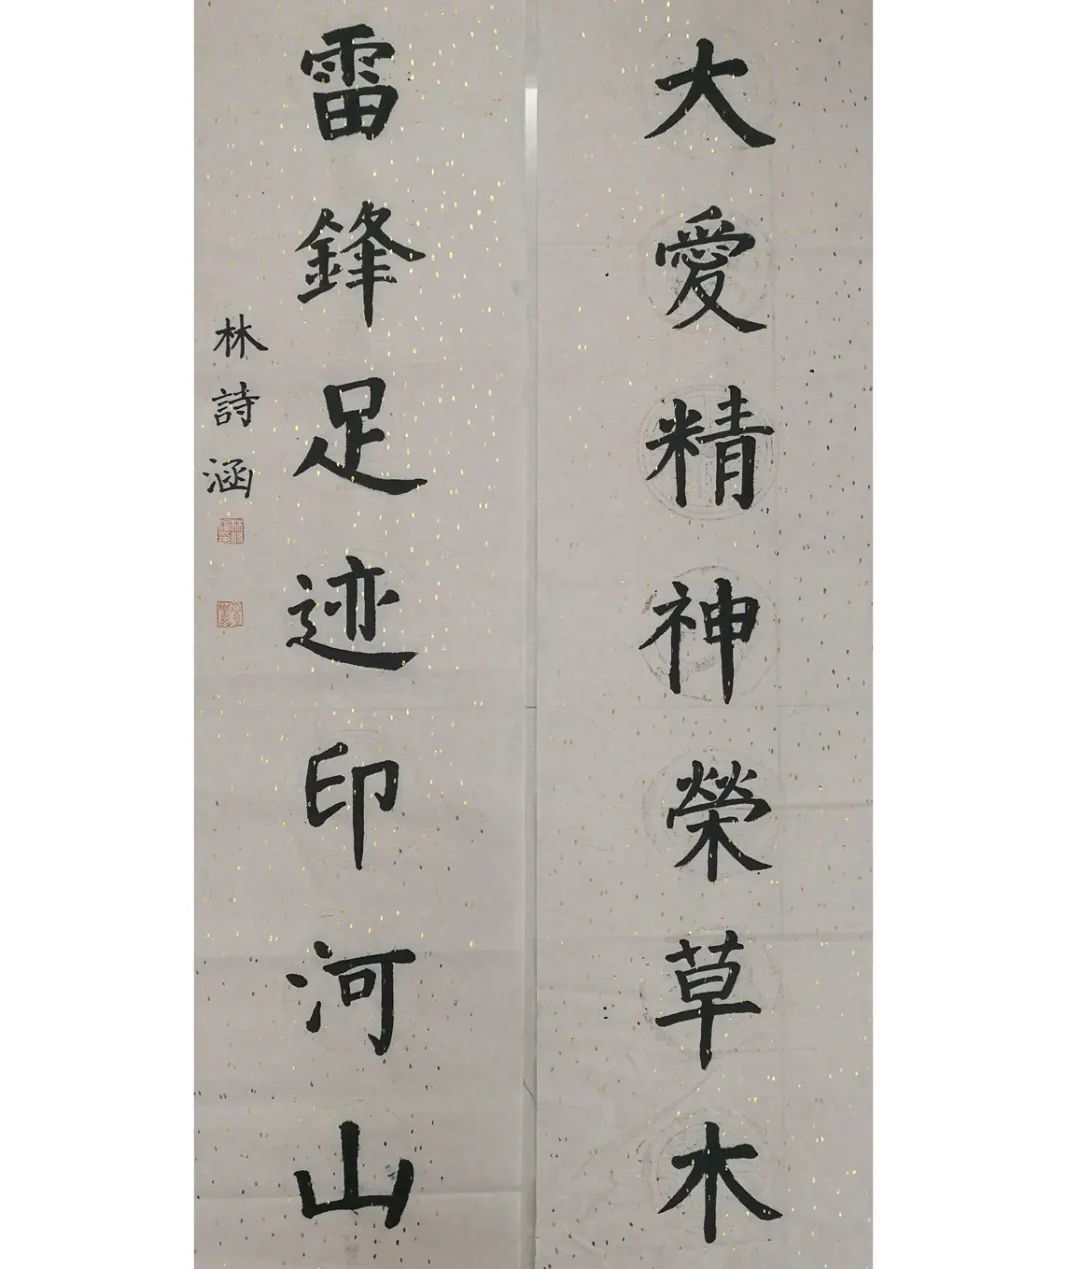 大愛精神榮草木
雷鋒足迹印河山
林詩涵